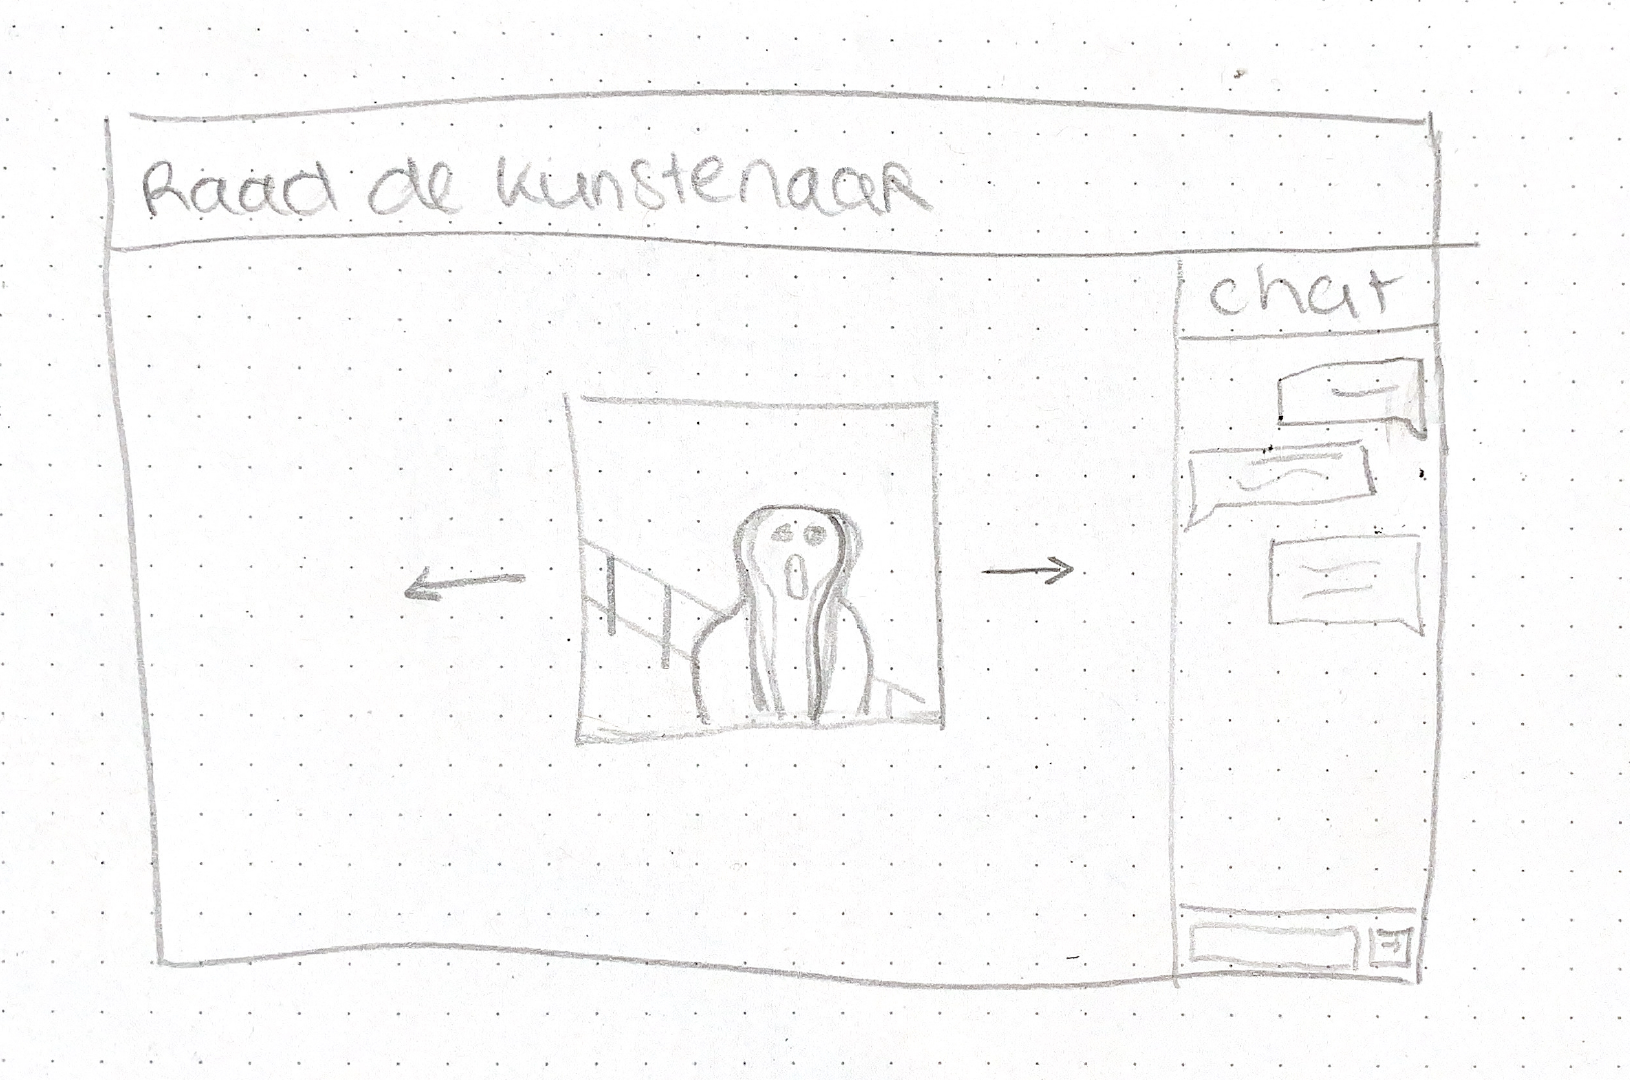 Raad de kunstenaar
chat